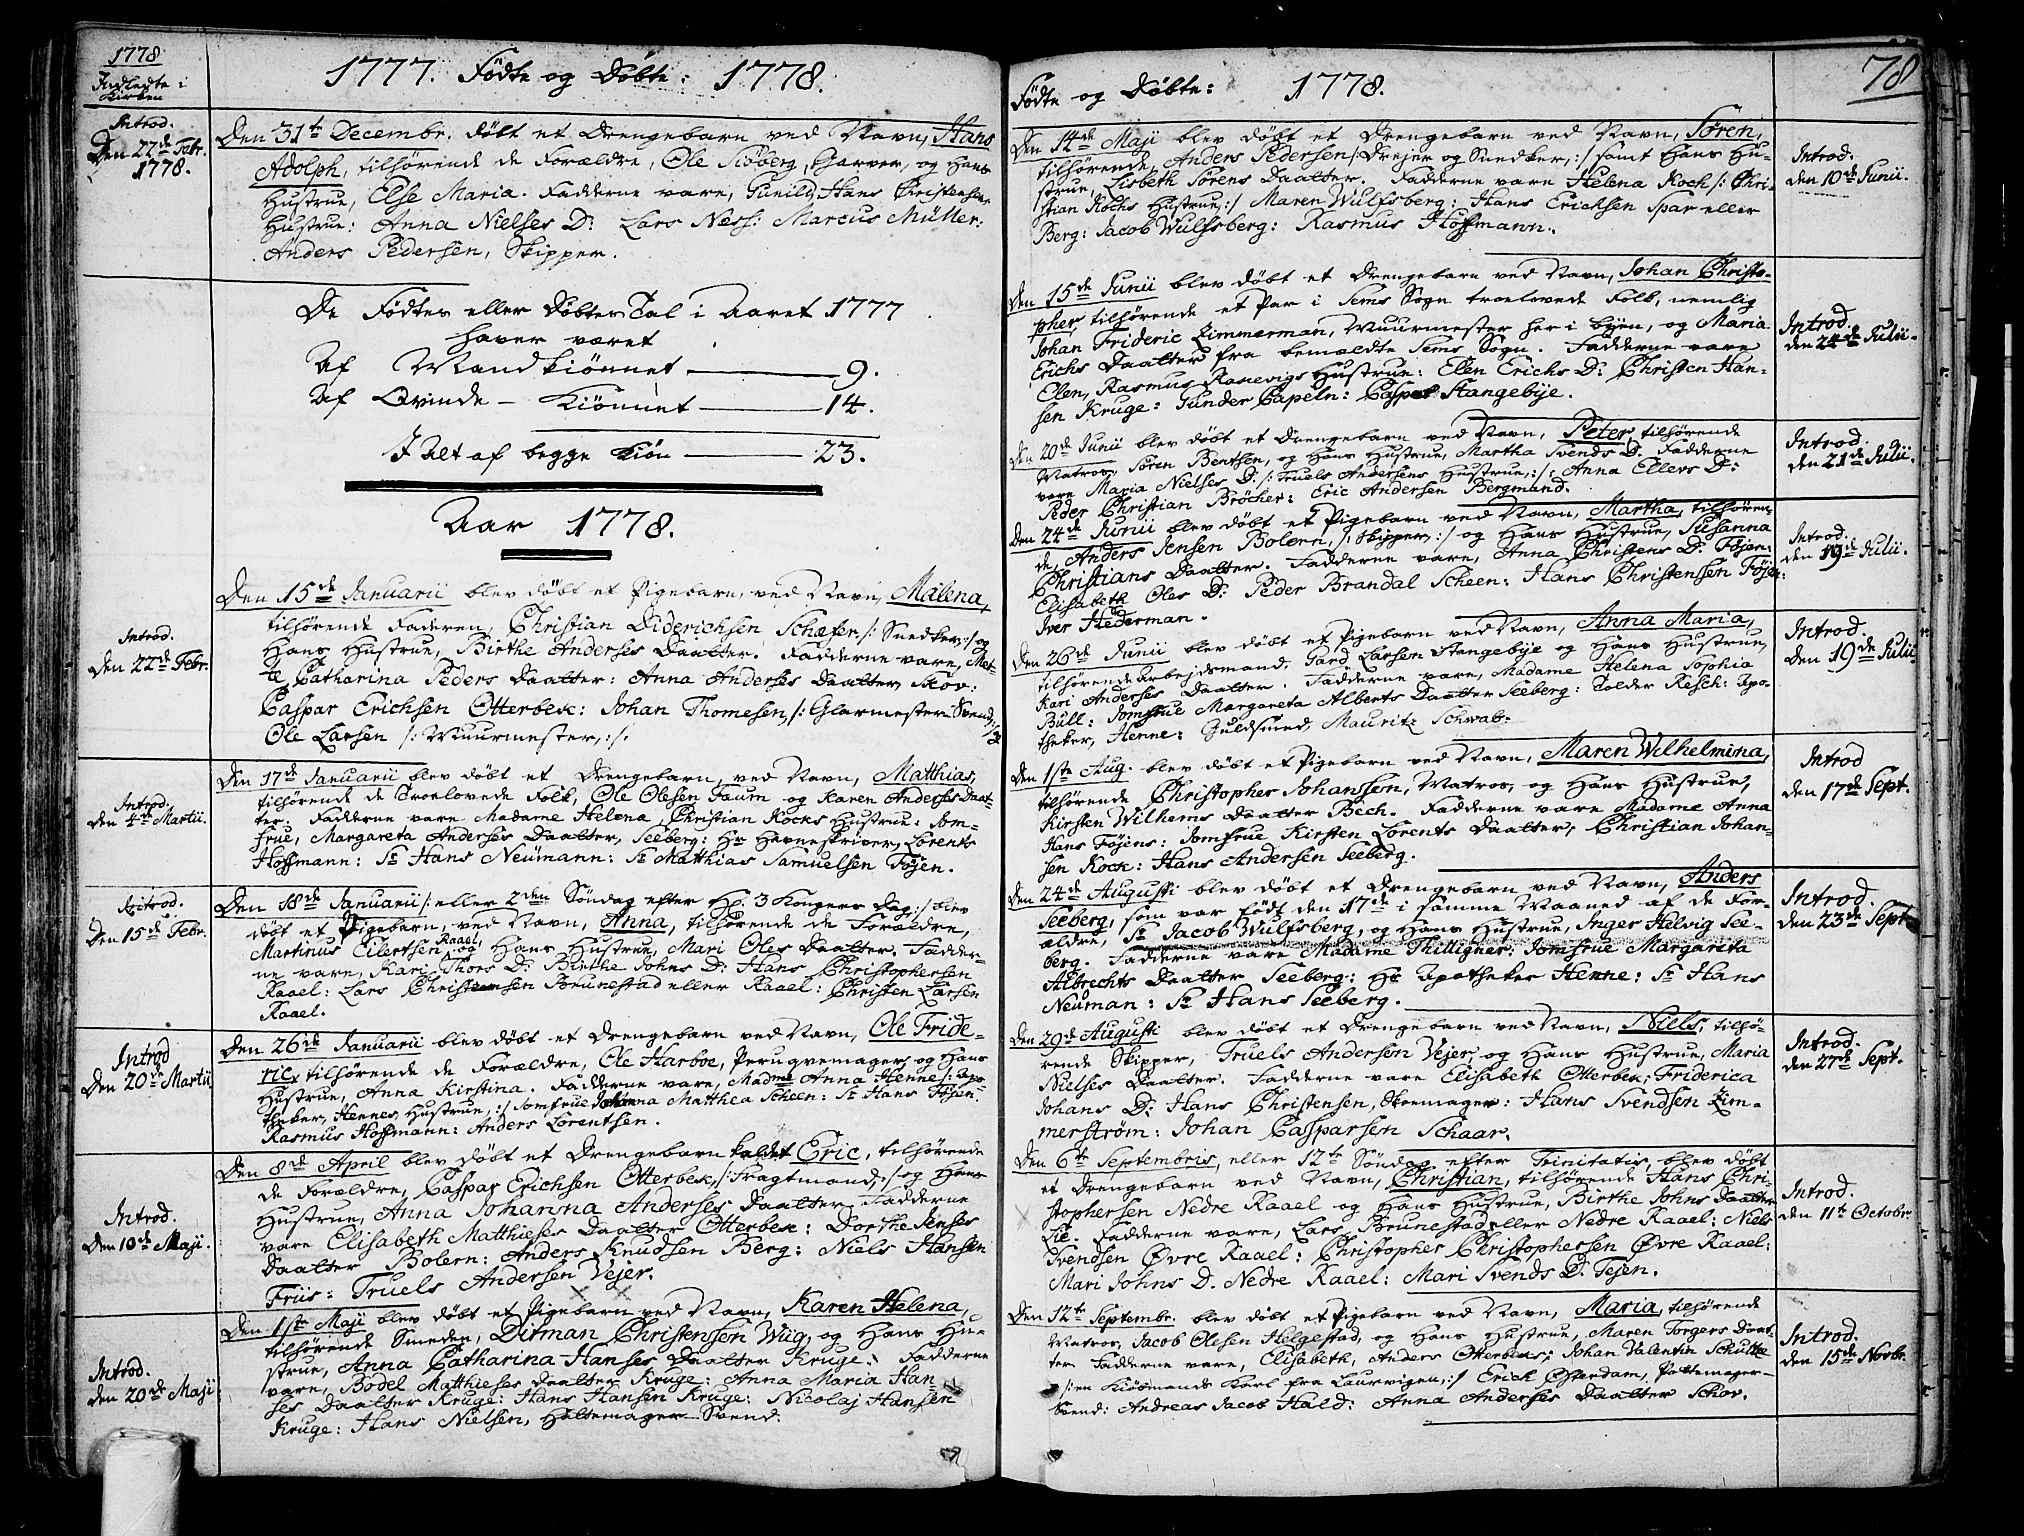 1778
Indledte i
Kirken
1777. Fødte og Døbte: 1778.
Introd.
Den 22de Febr.
1778.
Den 31te Decembr. døbt et Drengebarn ved Navn, Hans
Adolph, tilhørende de Forældre, Ole Siøberg, Garver, og Hans
Hustrue, Else Maria. Fadderne vare, Gunild, Hans Christensens
Hustrue: Anna Nielses D: Lars Ness: Marcus Müller:
Anders Pedersen, Skipper.
De Fødtes eller Døbtes Tal i Aaret 1777
haver været
Af Mandkiønnet — 9.
Af Qvinde - Kiønnet — 14.
I Alt af begge Kiøn — 23.
Aar 1778.
Introd.
Den 22de Febr.
Den 15de Januarii blev døbt et Pigebarn, ved Navn, Malena,
tilhørende Faderen, Christian Diderichsen Schæfer /: Snedker :/ og
Hans Hustrue, Birthe Anderses Daatter. Fadderne vare, Met-
te Catharina Peders Daatter: Anna Anderses Daatter, Skov:
Caspar Erichsen Otterbek: Johan Thomesen, /: Glarmester-Svend :/
Ole Larsen /: Muurmester, :/:
Introd.
Den 4de Martii.
Den 17de Januarii blev døbt et Drengebarn, ved Navn, Matthias,
tilhørende de Troelovede Folk, Ole Olesen Faum og Karen Anderses Daat-
ter. Fadderne vare Madame Helena, Christian Kocks Hustrue: Jom-
frue, Margareta Anderses Daatter, Seeberg: Hr Havneskriver, Lorents
Hoffmann: Sr Hans Neumann: Sr Matthias Samuelsen Føjen.
Introd.
Den 15de Febr.
Den 18de Januarii /: eller 2den Søndag efter H. 3 Kongers Dag :/ blev
døbt et Pigebarn, ved Navn, Anna, tilhørende de Forældre,
Martinus Eilertsen Raael, og Hans Hustrue, Mari Oles Daatter. Fadder-
ne vare, Kari Thors D: Birthe Johns D: Hans Christophersen
Raael: Lars Christensen Brunestad eller Raael: Christen Larsen
Raael.
Introd
Den 20de Martii
Den 26de Januarii blev døbt et Drengebarn ved Navn, Ole Fride-
ric, tilhørende de Forældre, Ole Harboe, Peruqvemager, og Hans
Hustrue, Anna Kirstina. Fadderne vare, Madme Anna Henne /: Apo-
theker, Hennes Hustrue, :/ Jomfrue Johanna Matthea Scheen: Sr Hans Føjen:
Rasmus Hoffmann: Anders Lorentsen.
Introd.
Den 10de Maji.
Den 8de April blev døbt et Drengebarn kaldet Eric, tilhørende
de Forældre, Caspar Erichsen Otterbek, /: Fragtmand, :/ og Hans
Hustrue, Anna Johanna Anderses Daatter. Fadderne
vare Elisabeth Matthieses Daatter Otterbek: Dorthe Jenses
Daatter Bolern: Anders Knudsen Berg: Niels Hansen
Friis: Truels Andersen Vejer.
Introd.
Den 20de Maji
Den 1ste Maji blev døbt et Pigebarn ved Navn, Karen Helena,
tilhørende Smeden, Ditman Christensen Wug, og Hans Hu-
strue, Anna Catharina Hanses Daatter Kruge. Fadderne
vare, Bodel Matthieses Daatter Kruge: Anna Maria Han-
ses Daatter Kruge: Hans Hansen Kruge: Nicolaj Hansen
Kruge: Hans Nielsen, Hattemager Svend.
78
Fødte og Døbte: 1778.
Den 14de Maji blev døbt et Drengebarn ved Navn, Søren,
tilhørende, Anders Pedersen /: Drejer og Snedker, :/ samt Hans Hu-
strue, Lisbeth Sørens Daatter. Fadderne vare Helena Koch /: Chri-
stian Kochs Hustrue, :/ Maren Wulfsberg: Hans Erichsen Spar eller
Berg: Jacob Wulfsberg: Rasmus Hoffmann.
Introd.
den 10de Junii.
Den 15de Junii blev døbt et Drengebarn ved Navn, Johan Christo-
pher, tilhørende et Par i Sems Sogn troelovede Folk, nemlig
Johan Frideric Zimmerman, Muurmester her i byen, og Maria
Erichs Daatter fra bemældte Sems Sogn. Fadderne vare
Elen, Rasmus Ranevigs Hustrue: Elen Erichs D: Christen Han-
sen Kruge: Gunder Capeln: Caspar Stangebye.
Introd.
den 24de Julii.
Den 20de Junii blev døbt et Drengebarn ved Navn, Peter, tilhørende
Matros, Søren Bentsen, og Hans Hustrue, Martha Svends D. Fadderne
vare Maria Nielses D. /: Truels Andersens Hustrue, :/: Anna Ellers D:
Peder Christian Bröcher: Eric Andersen Bergmand.
Introd.
den 21de Julii.
Den 24de Junii blev døbt et Pigebarn ved Navn, Martha, tilhøren-
de, Anders Jensen Bolern, /: Skipper, :/ og Hans Hustrue, Susanna
Christians Daatter. Fadderne vare, Anna Christens D: Føjen:
Elisabeth Oles D: Peder Brandal Scheen: Hans Christensen Føjen:
Iver Hederman.
Introd.
den 19de Julii.
Den 26de Junii blev døbt et Pigebarn ved Navn, Anna Maria,
tilhørende Arbejdsmand, Gard Larsen Stangebye og Hans Hustrue,
Kari Anderses Daatter. Fadderne vare, Madame Helena Sophia
Büll: Jomfrue Margareta Alberts Daatter Seeberg: Tolder Resch: Apo-
theker, Henne: Guldsmed, Mauritz Schwab.
Introd.
den 19de Julii
Den 1ste Aug. blev døbt et Pigebarn ved Navn, Maren Wilhelmina,
tilhørende Christopher Johanssen, Matros, og Hans Hustrue,
Kirsten Wilhems Daatter Bech. Fadderne vare Madame Anna
Hans Føjens: Jomfrue Kirsten Lorents Daatter, Christian Johan-
sen Kock: Hans Andersen Seeberg.
Introd
den 17de Sept.
Den 24de Augusti blev døbt et Drengebarn ved Navn, Anders
Seeberg, som var født den 17de i samme Maaned af de For-
ældre, Sr Jacob Wulfsberg, og Hans Hustrue, Inger Helvig See-
berg. Fadderne vare Madame Thilligner: Jomfrue Margareta
Albrechts Daatter Seeberg: Hr Apotheker Henne: Sr Hans
Neuman: Sr Hans Seeberg.
Introd.
den 23de Sept.
Den 29de Augusti blev døbt et Drengebarn ved Navn, Niels, tilhø-
rende Skipper, Truels Andersen Vejer, og Hans Hustrue, Maria
Nielses Daatter. Fadderne vare Elisabeth Otterbek: Friderica
Johans D: Hans Christensen, Skoemager: Hans Svendsen Zim-
merstrøm: Johan Casparsen Schaar.
Introd.
den 27de Sept.
Den 6te Septembris, eller 12te Søndag efter Trinitatis, blev døbt
et Drengebarn ved Navn, Christian, tilhørende Hans Chri-
stophersen Nedre Raael og Hans Hustrue, Birthe Johns Daatter
Lie. Fadderne vare, Lars Brunestad eller Nedre Raael: Niels
Svendsen Øvre Raael: Christopher Christophersen Øvre Raael:
Mari Johns D. Nedre Raael: Mari Svends D: Tejen.
Introd.
den 11te Octobr.
Den 12te Septembr. blev døbt et Pigebarn ved Navn, Maria, tilhørende
Matros, Jacob Olesen Helgestad, og Hans Hustrue, Maren Torgers Daat-
ter. Fadderne vare, Elisabeth, Anders Otterbeks; Johan Valentin Schütte
/: en Kiøbmands Karl fra Laurvigen, :/ Erich Osterdam, Pottemager-
Svend: Andreas Jacob Hald: Anna Anderses Daatter Schov.
Introd.
den 15de Novbr.